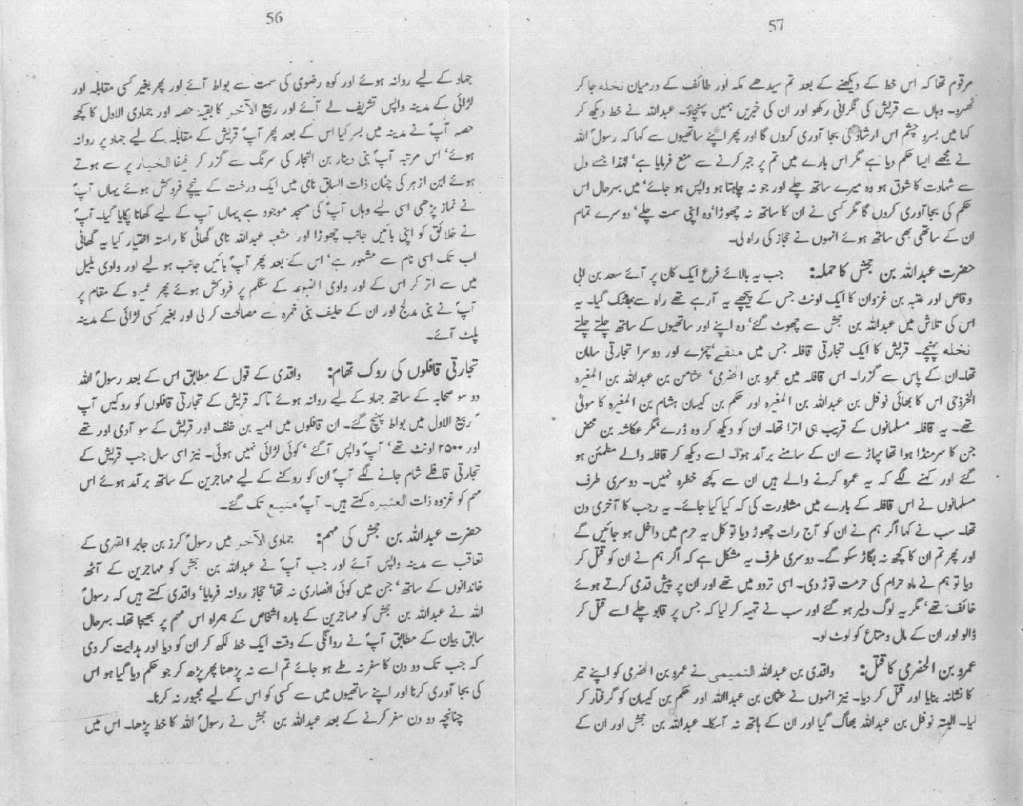 56
جہاد کے لیے روانہ ہوئے اور کوہ رضوی کی سمت سے بواط آئے اور پھر بغیر کسی مقابلہ اور
لڑائی کے مدینہ واپس تشریف لے آئے اور ربیع الآخر کا بقیہ حصہ اور جمادی الاول کا کچھ
حصہ آپؐ نے مدینہ میں بسر کیا اس کے بعد پھر آپؐ قریش کے مقابلہ کے لیے جہاد پر روانہ
ہوئے‘ اس مرتبہ آپؐ بنی دینار بن النجار کی سرنگ سے گزر کر فیفا الخبار پر سے ہوتے
ہوئے ابن ازہر کی چٹان ذات الساق نامی میں ایک درخت کے نیچے فروکش ہوئے یہاں آپؐ
نے نماز پڑھی اسی لیے وہاں آپؐ کی مسجد موجود ہے یہاں آپ کے لیے کھانا پکایا گیا۔ آپؐ
نے خلائق کو اپنی بائیں جانب چھوڑا اور شعبہ عبداللہ نامی گھاٹی کا راستہ اختیار کیا یہ گھاٹی
اب تک اسی نام سے مشہور ہے‘ اس کے بعد پھر آپؐ بائیں جانب ہو لیے اور وادی یلیل
میں سے اتر کر اس کے اور وادی الضبوعہ کے سنگم پر فروکش ہوئے پھر عشیرہ کے مقام پر
آپؐ نے بنی مدلج اور ان کے حلیف بنی ضمرہ سے مصالحت کر لی اور بغیر کسی لڑائی کے مدینہ
پلٹ آئے۔
تجارتی قافلوں کی روک تھام: واقدی کے قول کے مطابق اس کے بعد رسولؐ اللہ
دو سو صحابہ کے ساتھ جہاد کے لیے روانہ ہوئے تاکہ قریش کے تجارتی قافلوں کو روکیں آپ
ربیع الاول میں بواط پہنچ گئے۔ ان قافلوں میں امیہ بن خلف اور قریش کے سو آدمی اور تھے
اور ۲۵۰۰ اونٹ تھے‘ آپؐ واپس آگئے‘ کوئی لڑائی نہیں ہوئی۔ نیز اسی سال جب قریش کے
تجارتی قافلے شام جانے لگے آپؐ ان کو روکنے کے لیے مہاجرین کے ساتھ برآمد ہوئے اس
مہم کو غزوہ ذات العشیرہ کہتے ہیں۔ آپؐ منبع تک گئے۔
حضرت عبداللہ بن جحش کی مہم: جمادی الآخر میں رسولؐ کرز بن جابر الفہری کے
تعاقب سے مدینہ واپس آئے اور جب آپؐ نے عبداللہ بن جحش کو مہاجرین کے آٹھ
خاندانوں کے ساتھ‘ جس میں کوئی انصاری نہ تھا‘ حجاز روانہ فرمایا‘ واقدی کہتے ہیں کہ رسولؐ
اللہ نے عبداللہ بن جحش کو مہاجرین کے بارہ اشخاص کے ہمراہ اس مہم پر بھیجا تھا۔ بہرحال
سابق بیان کے مطابق آپؐ نے روانگی کے وقت ایک خط لکھ کر ان کو دیا اور ہدایت کر دی
کہ جب تک دو دن کا سفر نہ طے ہو جائے تم اسے نہ پڑھنا پھر پڑھ کر جو حکم دیا گیا ہو اس
کی بجا آوری کرنا اور اپنے ساتھیوں میں سے کسی کو اس کے لیے مجبور نہ کرنا۔
چنانچہ دو دن سفر کرنے کے بعد عبداللہ بن جحش نے رسولؐ اللہ کا خط پڑھا۔ اس میں
57
مرقوم تھا کہ اس خط کے دیکھنے کے بعد تم سیدھے مکہ اور طائف کے درمیان نخلہ جا کر
ٹھہرو۔ وہاں سے قریش کی نگرانی رکھو اور ان کی خبریں ہمیں پہنچاؤ۔ عبداللہ نے خط دیکھ کر
کہا میں بسرو چشم اس ارشاد کی بجا آوری کروں گا اور پھر اپنے ساتھیوں سے کہا کہ رسولؐ اللہ
نے مجھے ایسا حکم دیا ہے مگر اس بارے میں تم پر جبر کرنے سے منع فرمایا ہے‘ لہٰذا جسے دل
سے شہادت کا شوق ہو وہ میرے ساتھ چلے اور جو نہ چاہتا ہو واپس ہو جائے‘ میں بہرحال اس
حکم کی بجا آوری کروں گا مگر کسی نے ان کا ساتھ نہ چھوڑا‘ وہ اپنی سمت چلے‘ دوسرے تمام
ان کے ساتھی بھی ساتھ ہوئے انہوں نے حجاز کی راہ لی۔
حضرت عبداللہ بن جحش کا حملہ: جب یہ بالائے فرع ایک کان پر آئے سعد بن ابی
وقاص اور عتبہ بن غزوان کا ایک اونٹ جس کے پیچھے یہ آ رہے تھے راہ سے بھٹک گیا۔ یہ
اس کی تلاش میں عبداللہ بن جحش سے چھوٹ گئے‘ وہ اپنے اور ساتھیوں کے ساتھ چلتے چلتے
نخلہ پہنچے۔ قریش کا ایک تجارتی قافلہ جس میں منقے‘ چمڑے اور دوسرا تجارتی سامان
تھا۔ ان کے پاس سے گزرا۔ اس قافلہ میں عمرو بن الحضرمی‘ عثمان بن عبداللہ بن المغیرہ
الخزدجی اس کا بھائی نوفل بن عبداللہ بن المغیرہ اور حکم بن کیسان ہشام بن المغیرہ کا مولیٰ
تھے۔ یہ قافلہ مسلمانوں کے قریب ہی اترا تھا۔ ان کو دیکھ کر وہ ڈرے مگر عکاشہ بن محض
جن کا سر منڈا ہوا تھا پہاڑ سے ان کے سامنے برآمد ہوئے۔ اسے دیکھ کر قافلہ والے مطمئن ہو
گئے اور کہنے لگے کہ یہ عمرہ کرنے والے ہیں ان سے کچھ خطرہ نہیں۔ دوسری طرف
مسلمانوں نے اس قافلہ کے بارے میں مشاورت کی کہ کیا کیا جائے۔ یہ رجب کا آخری دن
تھا۔ سب نے کہا اگر ہم نے ان کو آج رات چھوڑ دیا تو کل یہ حرم میں داخل ہو جائیں گے
اور پھر تم ان کا کچھ نہ بگاڑ سکو گے۔ دوسری طرف یہ مشکل ہے کہ اگر ہم نے ان کو قتل کر
دیا تو ہم نے ماہ حرام کی حرمت توڑ دی۔ اسی تردد میں تھے اور ان پر پیش قدمی کرتے ہوئے
خائف تھے‘ مگر یہ لوگ دلیر ہو گئے اور سب نے تہیہ کر لیا کہ جس پر قابو چلے اسے قتل کر
ڈالو اور ان کے مال و متاع کو لوٹ لو۔
عمرو بن الحضرمی کا قتل: واقدی بن عبداللہ التمیمی نے عمرو بن الحضری کو اپنے تیر
کا نشانہ بنایا اور قتل کر دیا۔ نیز انہوں نے عثمان بن عبداللہ اور حکم بن کیسان کو گرفتار کر
لیا۔ البتہ نوفل بن عبداللہ بھاگ گیا اور ان کے ہاتھ نہ آسکا۔ عبداللہ بن جحش اور ان کے